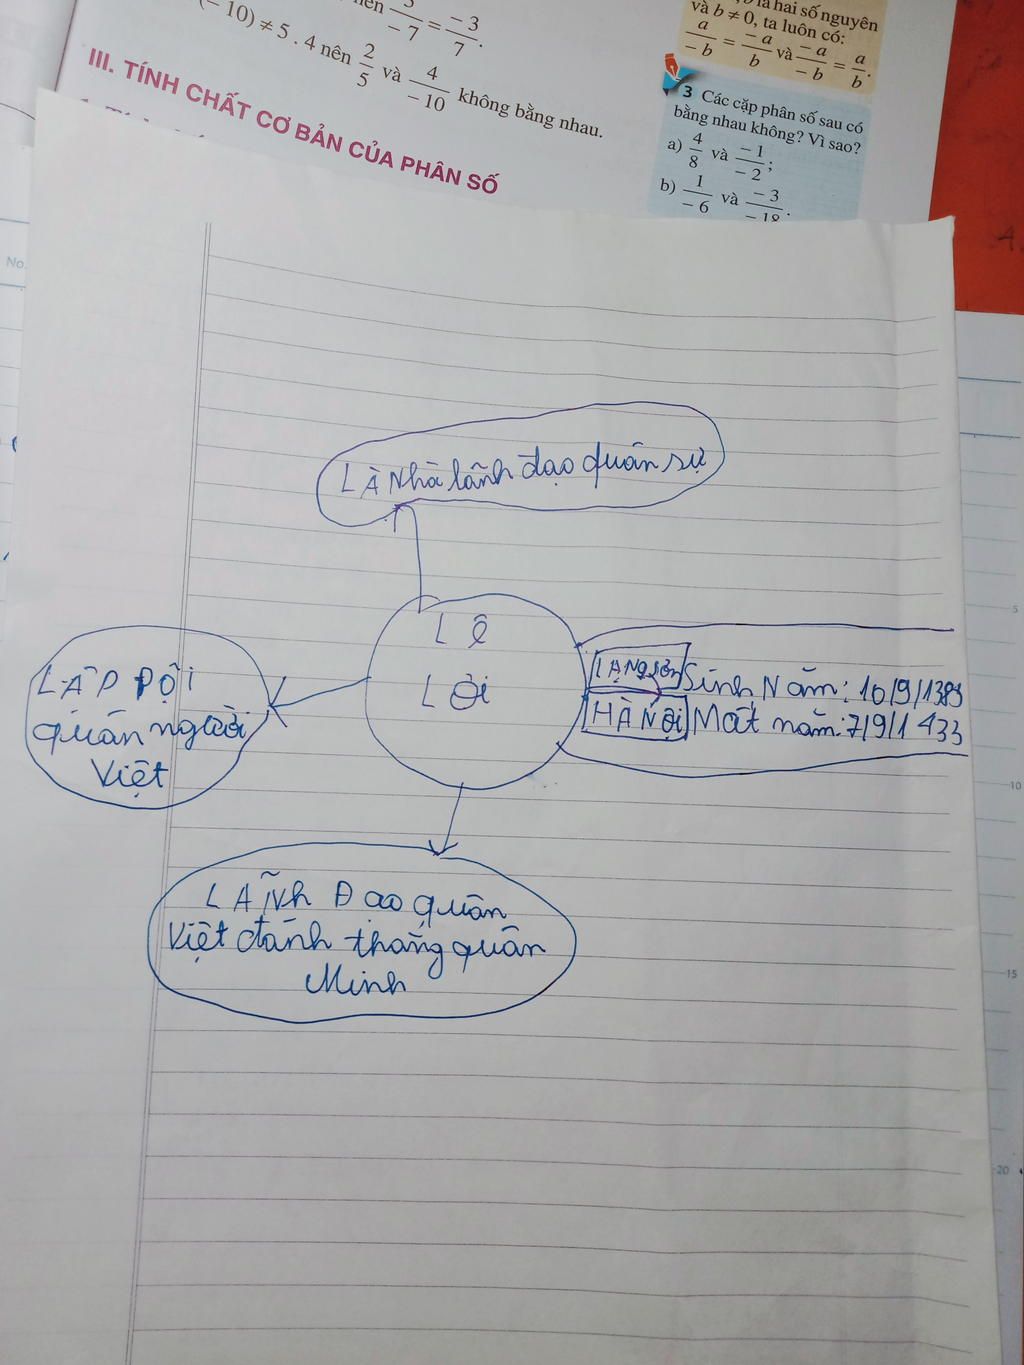 nên \frac{3}{-7} = \frac{-3}{7}.
(-10) ≠ 5 . 4 nên \frac{2}{5} và \frac{4}{-10} không bằng nhau.
III. TÍNH CHẤT CƠ BẢN CỦA PHÂN SỐ
là hai số nguyên
và b ≠ 0, ta luôn có:
\frac{a}{-b} = \frac{-a}{b} và \frac{-a}{-b} = \frac{a}{b}.
3 Các cặp phân số sau có
bằng nhau không? Vì sao?
a) \frac{4}{8} và \frac{-1}{-2};
b) \frac{1}{-6} và \frac{-3}{-18}.
No.
LÀ Nhà lãnh đạo quân sự
LÊ
Lợi
LẬP ĐỘI
quân người
Việt
LẠNgsơn Sinh Năm: 10/9/1385
HÀ Nội Mất năm: 7/9/1433
LÃNh Đạo quân
Việt đánh thắng quân
Minh
5
10
15
20